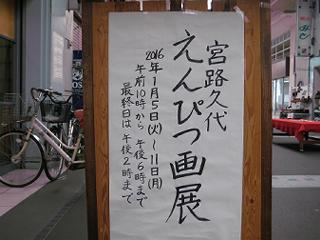 宮路久代
えんぴつ画展
2016年1月5日(火)〜11日(月)
午前10時から午後6時まで
最終日は午後2時まで